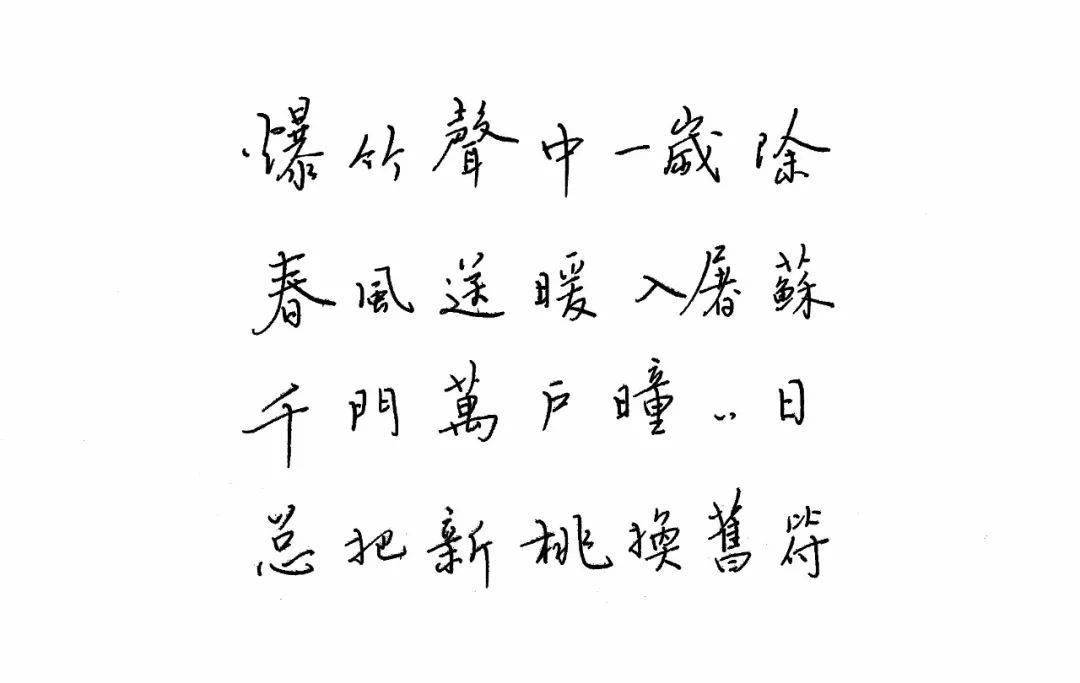 爆竹聲中一歲除
春風送暖入屠蘇
千門萬戶曈〃日
总把新桃換舊符